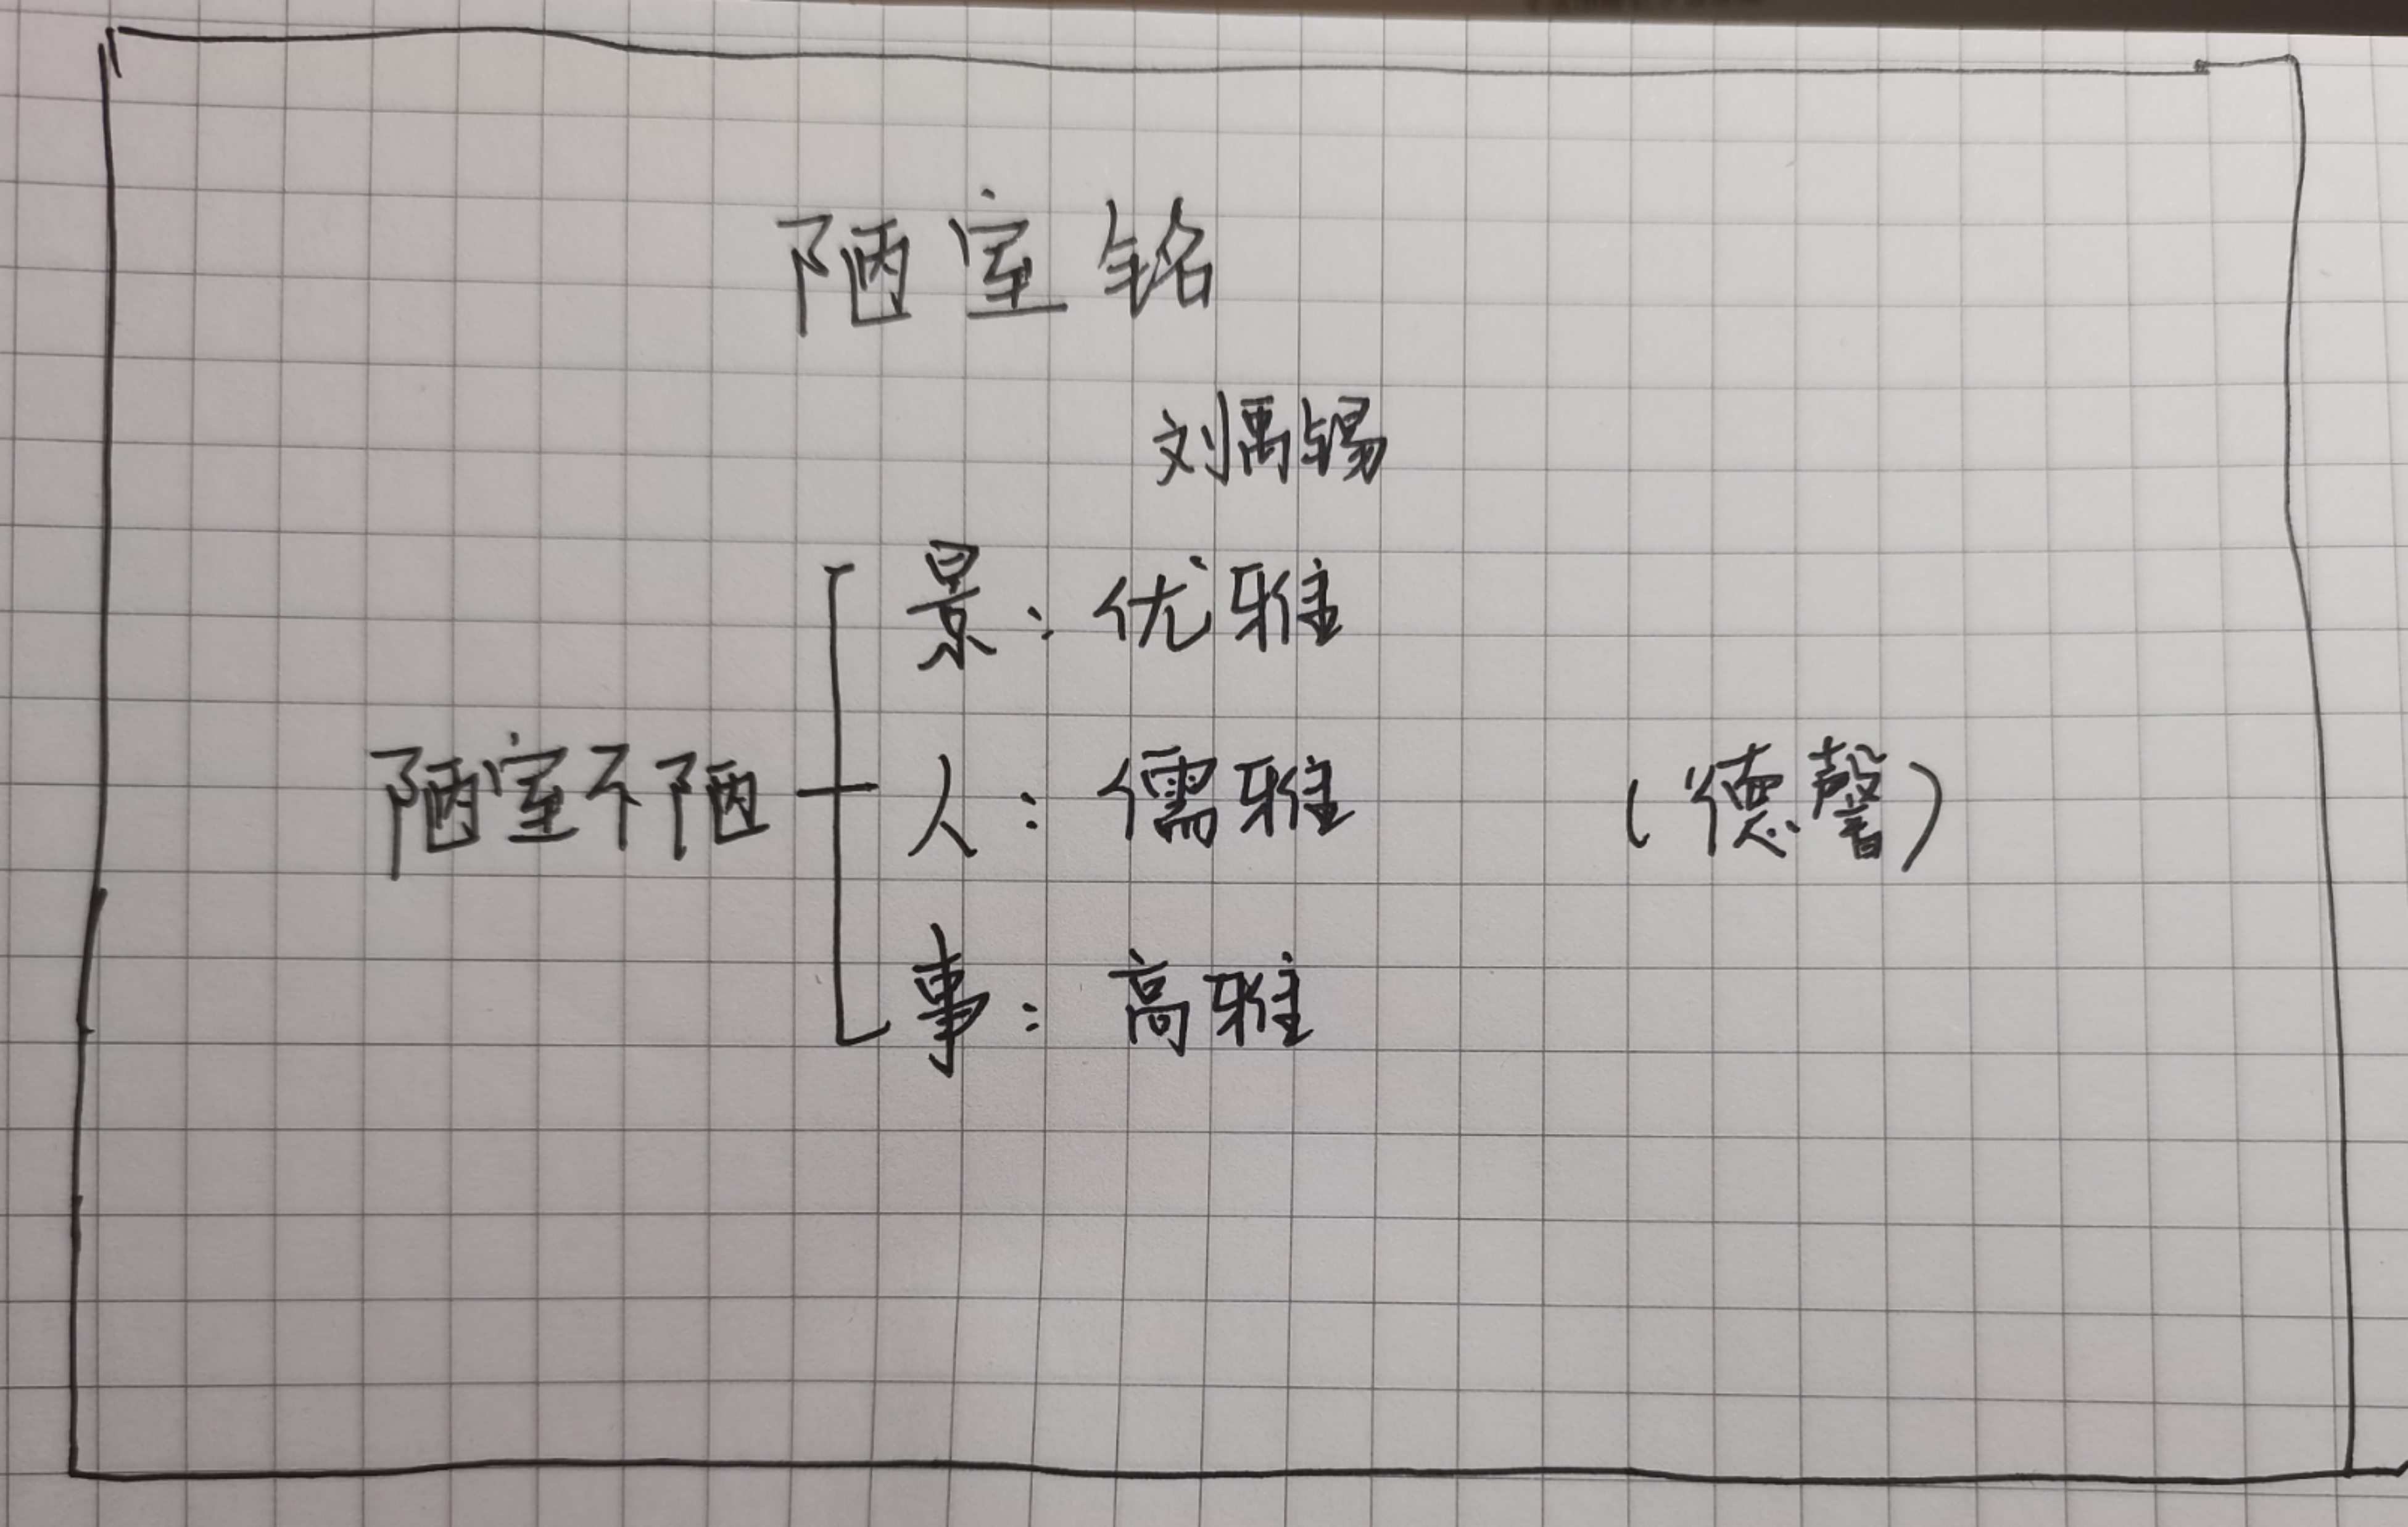 陋室铭
刘禹锡
景：优雅
陋室不陋 人：儒雅 （德馨）
事：高雅